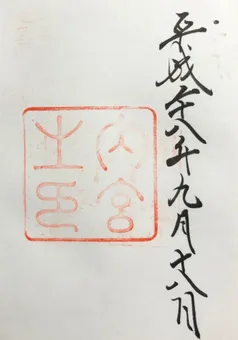 平成二十八年九月十八日
内宮
之印